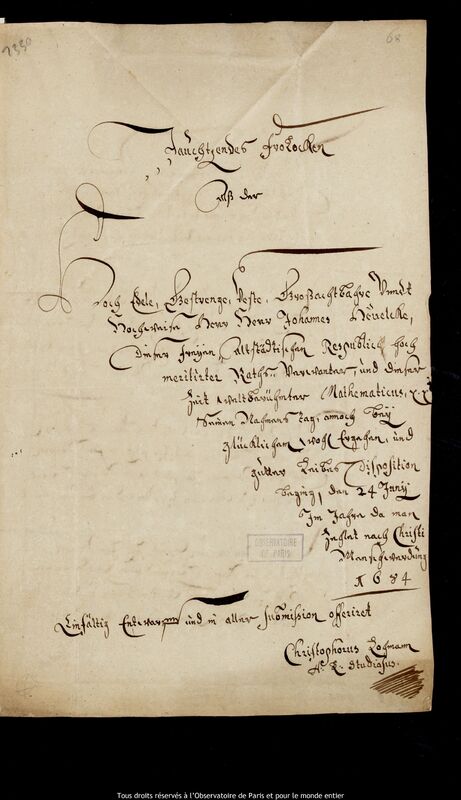 2330
68
Jauchtzendes Frolocken
Alß der
Hoch Edele, Gestrenge, Veste, Großachtbahre Vundt
Hochweise Herr Herr Johannes Hewelcke,
Dieser Freyen, Altstädtischen Respublick hoch
meritirter Rahts-Verwanter, und dieser
Zeit weltberühmter Mathematicus,
Seinen Nahmens tag, annoch bey
glücklichem wohl Ergehen, und
gutter Leibes Disposition
beging, den 24 Junij
Im Jahre da man
Zehlet nach Christi
Menschwerdung
1684
OBSERVATOIRE
DE PARIS
Einfältig Entworffen und in aller submission offeriret
Christophorus
Studiosus.
Tous droits réservés à l'Observatoire de Paris et pour le monde entier